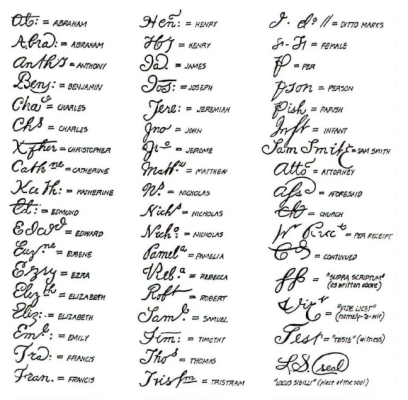 Ab: = ABRAHAM
Abra: = ABRAHAM
Anths = ANTHONY
Benj: = BENJAMIN
Chas = CHARLES
Chs = CHARLES
Xpher = CHRISTOPHER
Cathne = CATHERINE
Kath: = KATHERINE
Ed: = EDMUND
Edwd = EDWARD
Eugne = EUGENE
Ezry = EZRA
Elizth = ELIZABETH
Eliz: = ELIZABETH
Em: = EMILY
Fra: = FRANCIS
Fran. = FRANCIS
Hen: = HENRY
Hy = HENRY
Ja: = JAMES
Jos: = JOSEPH
Jere: = JEREMIAH
Jno = JOHN
Jre = JEROME
Mathw = MATTHEW
No. = NICHOLAS
Nichs = NICHOLAS
Nicho = NICHOLAS
Pamela = PAMELIA
Reb:a = REBECCA
Robt = ROBERT
Saml: = SAMUEL
Tim: = TIMOTHY
Thos = THOMAS
Tristm = TRISTRAM
do // = DITTO MARKS
= FEMALE
P = PER
pson = PERSON
pish = PARISH
Inft = INFANT
Sam Smith = SAM SMITH
Atto = ATTORNEY
afsd = AFORESAID
Ch = CHURCH
= PER RECEIPT
= CONTINUED
ss = "SUPRA SCRIPTUM" (as written above)
Vizt = "VIDE LICET" (namely-to-wit)
Test = "TESTE" (witness)
L.S. seal
"LOCUS SIGILLI" (place of the seal)